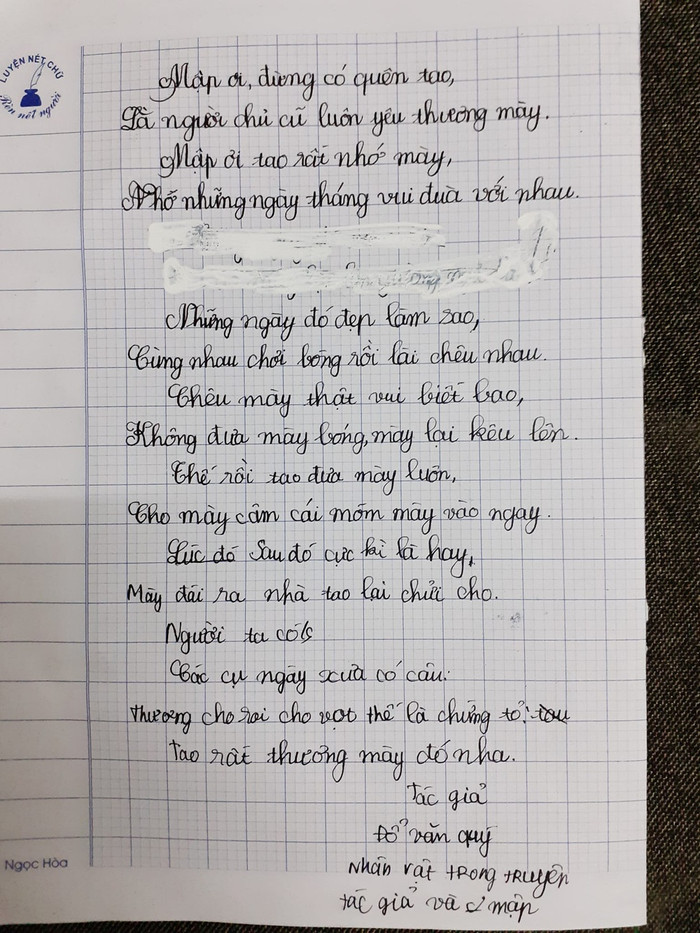 LUYỆN NÉT CHỮ
Rèn nết người
Mập ơi, đừng có quên tao,
Là người chủ cũ luôn yêu thương mày.
Mập ơi tao rất nhớ mày,
Nhớ những ngày tháng vui đùa với nhau.
Những ngày đó đẹp làm sao,
Cùng nhau chơi bóng rồi lại chêu nhau.
Chêu mày thật vui biết bao,
Không đưa mày bóng, mày lại kêu lên.
Thế rồi tao đưa mày luôn,
Cho mày câm cái mồm mày vào ngay.
Lúc đó Sau đó cực kì là hay,
Mày đái ra nhà tao lại chửi cho.
Người ta có
Các cụ ngày xưa có câu:
Thương cho roi cho vọt thế là chứng tỏ:
Tao rất thương mày đó nha.
Tác giả
Đỗ văn quý
Nhân vật trong truyện
tác giả và mập
Ngọc Hòa